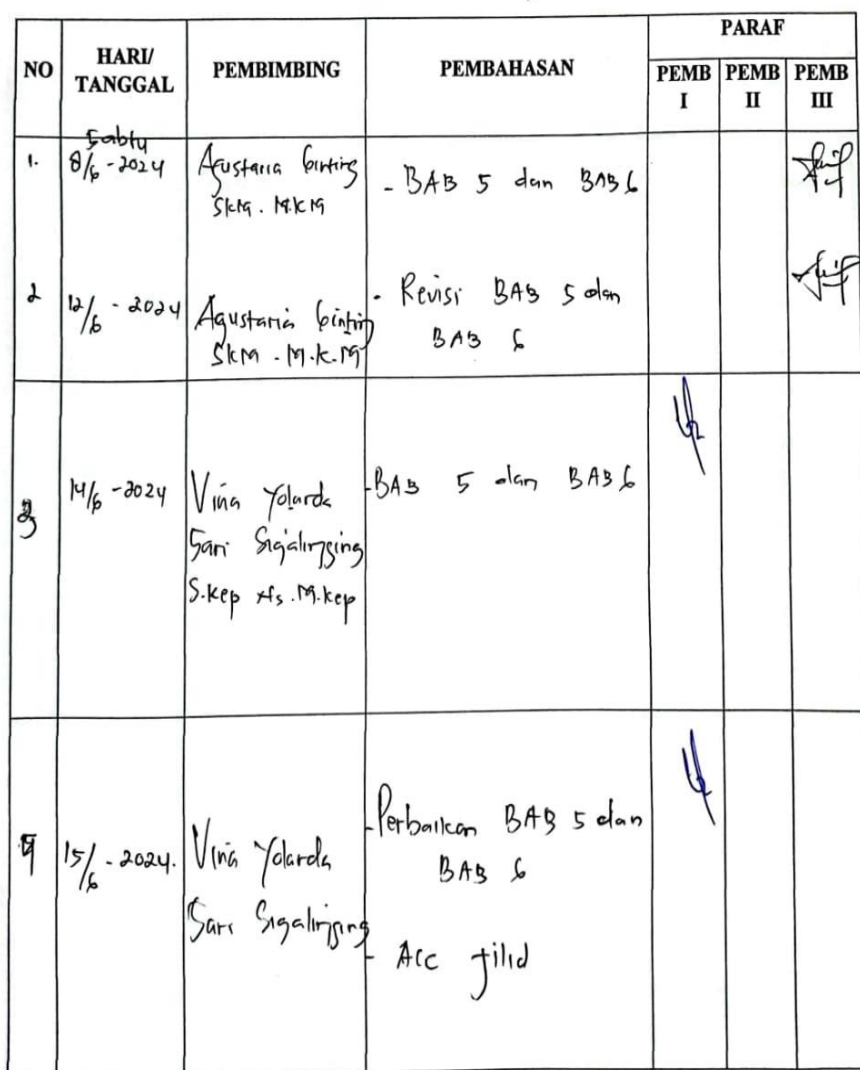 NO
HARI/
TANGGAL
PEMBIMBING
PEMBAHASAN
PARAF
PEMB
I
PEMB
II
PEMB
III
1.
Sabtu
8/6 - 2024
Agustaria Ginting
SKM. M.K.M
- BAB 5 dan BAB 6
2
12/6 - 2024
Agustaria Ginting
SKM. M.K.M
- Revisi BAB 5 dan
BAB 6
3
14/6 - 2024
Vina Yolarda
Sari Sigalingging
S.Kep Ns. M.Kep
- BAB 5 dan BAB 6
4
15/6 - 2024.
Vina Yolarda
Sari Sigalingging
- Perbaikan BAB 5 dan
BAB 6
- Acc Jilid